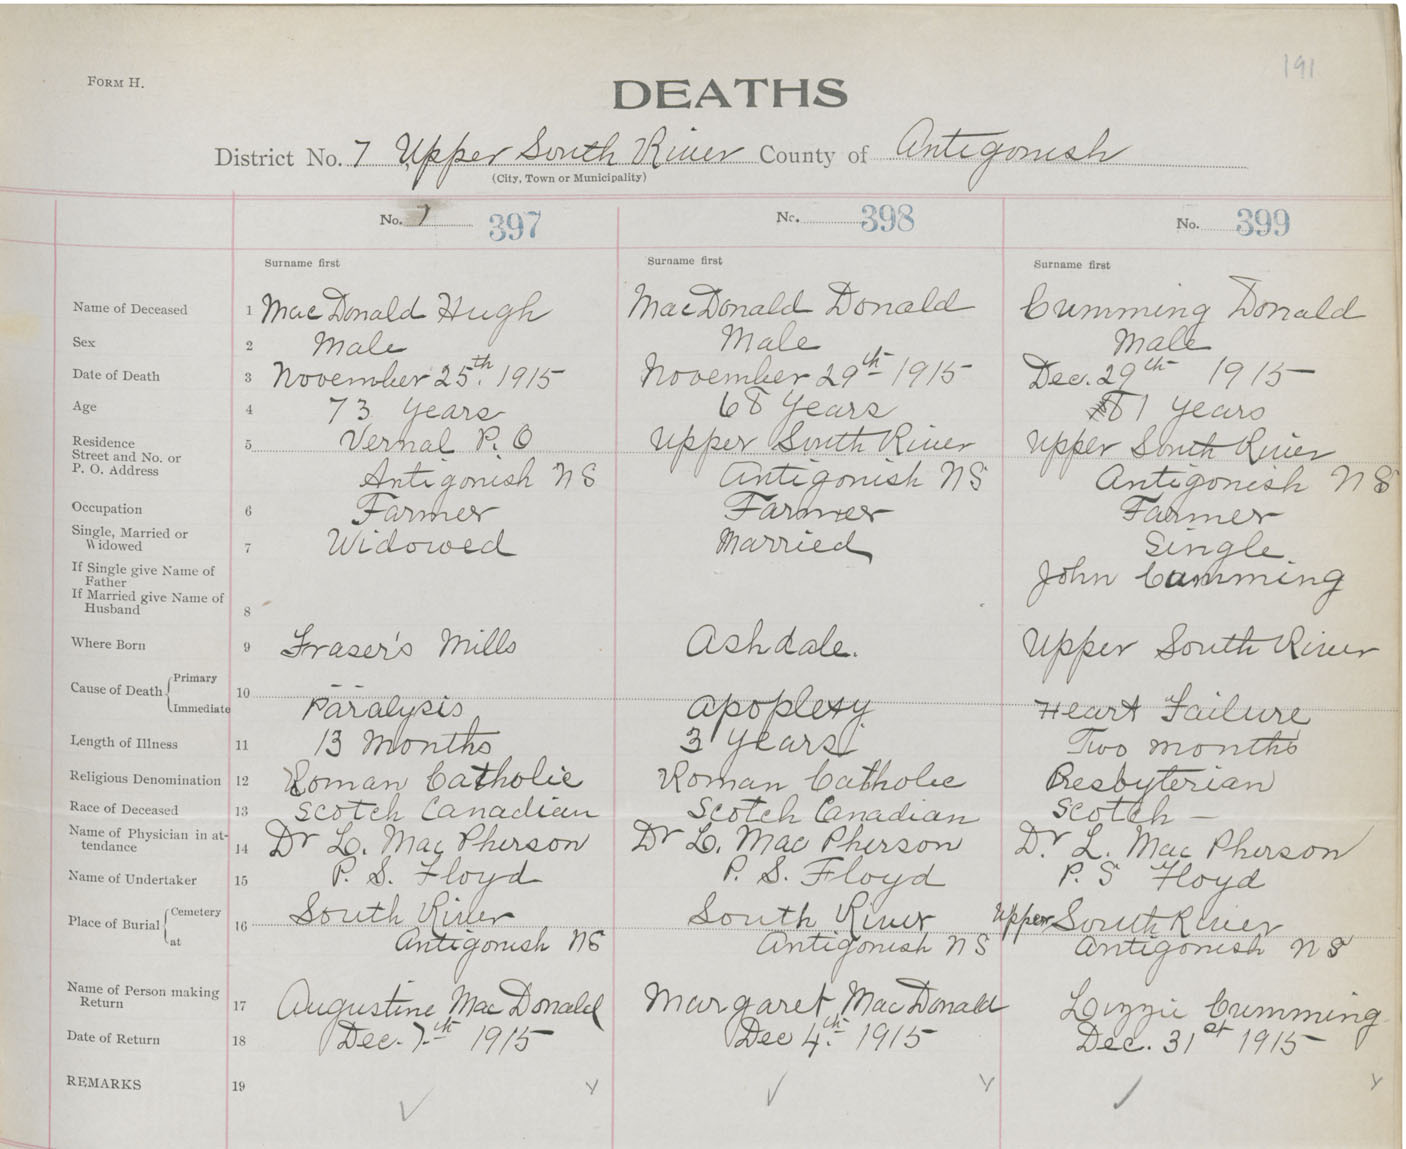 191
FORM H.
DEATHS
District No. 7 Upper South River County of Antigonish
(City, Town or Municipality)
No. 1 397 No. 398 No. 399
Surname first Surname first Surname first
Name of Deceased 1 MacDonald Hugh MacDonald Donald Cumming Donald
Sex 2 Male Male Male
Date of Death 3 November 25th. 1915 November 29th 1915 Dec. 29th 1915
Age 4 73 years 68 years 81 years
Residence 5 Vernal P. O Upper South River Upper South River
Street and No. or
P. O. Address Antigonish NS Antigonish NS Antigonish NS
Occupation 6 Farmer Farmer Farmer
Single, Married or
Widowed 7 Widowed Married Single
If Single give Name of
Father John Cumming
If Married give Name of
Husband 8
Where Born 9 Fraser's Mills Ashdale. Upper South River
Cause of Death Primary 10
Immediate Paralysis apoplexy Heart Failure
Length of Illness 11 13 months 3 years Two months
Religious Denomination 12 Roman Catholic Roman Catholic Presbyterian
Race of Deceased 13 Scotch Canadian Scotch Canadian Scotch —
Name of Physician in at-
tendance 14 Dr L. MacPherson Dr L. MacPherson Dr. L. MacPherson
Name of Undertaker 15 P. S. Floyd P. S. Floyd P. S Floyd
Place of Burial Cemetery 16 South River South River Upper South River
at Antigonish NS Antigonish NS Antigonish NS
Name of Person making
Return 17 Augustine MacDonald Margaret MacDonald Lizzie Cumming
Date of Return 18 Dec. 7th 1915 Dec 4th. 1915 Dec. 31st 1915
REMARKS 19